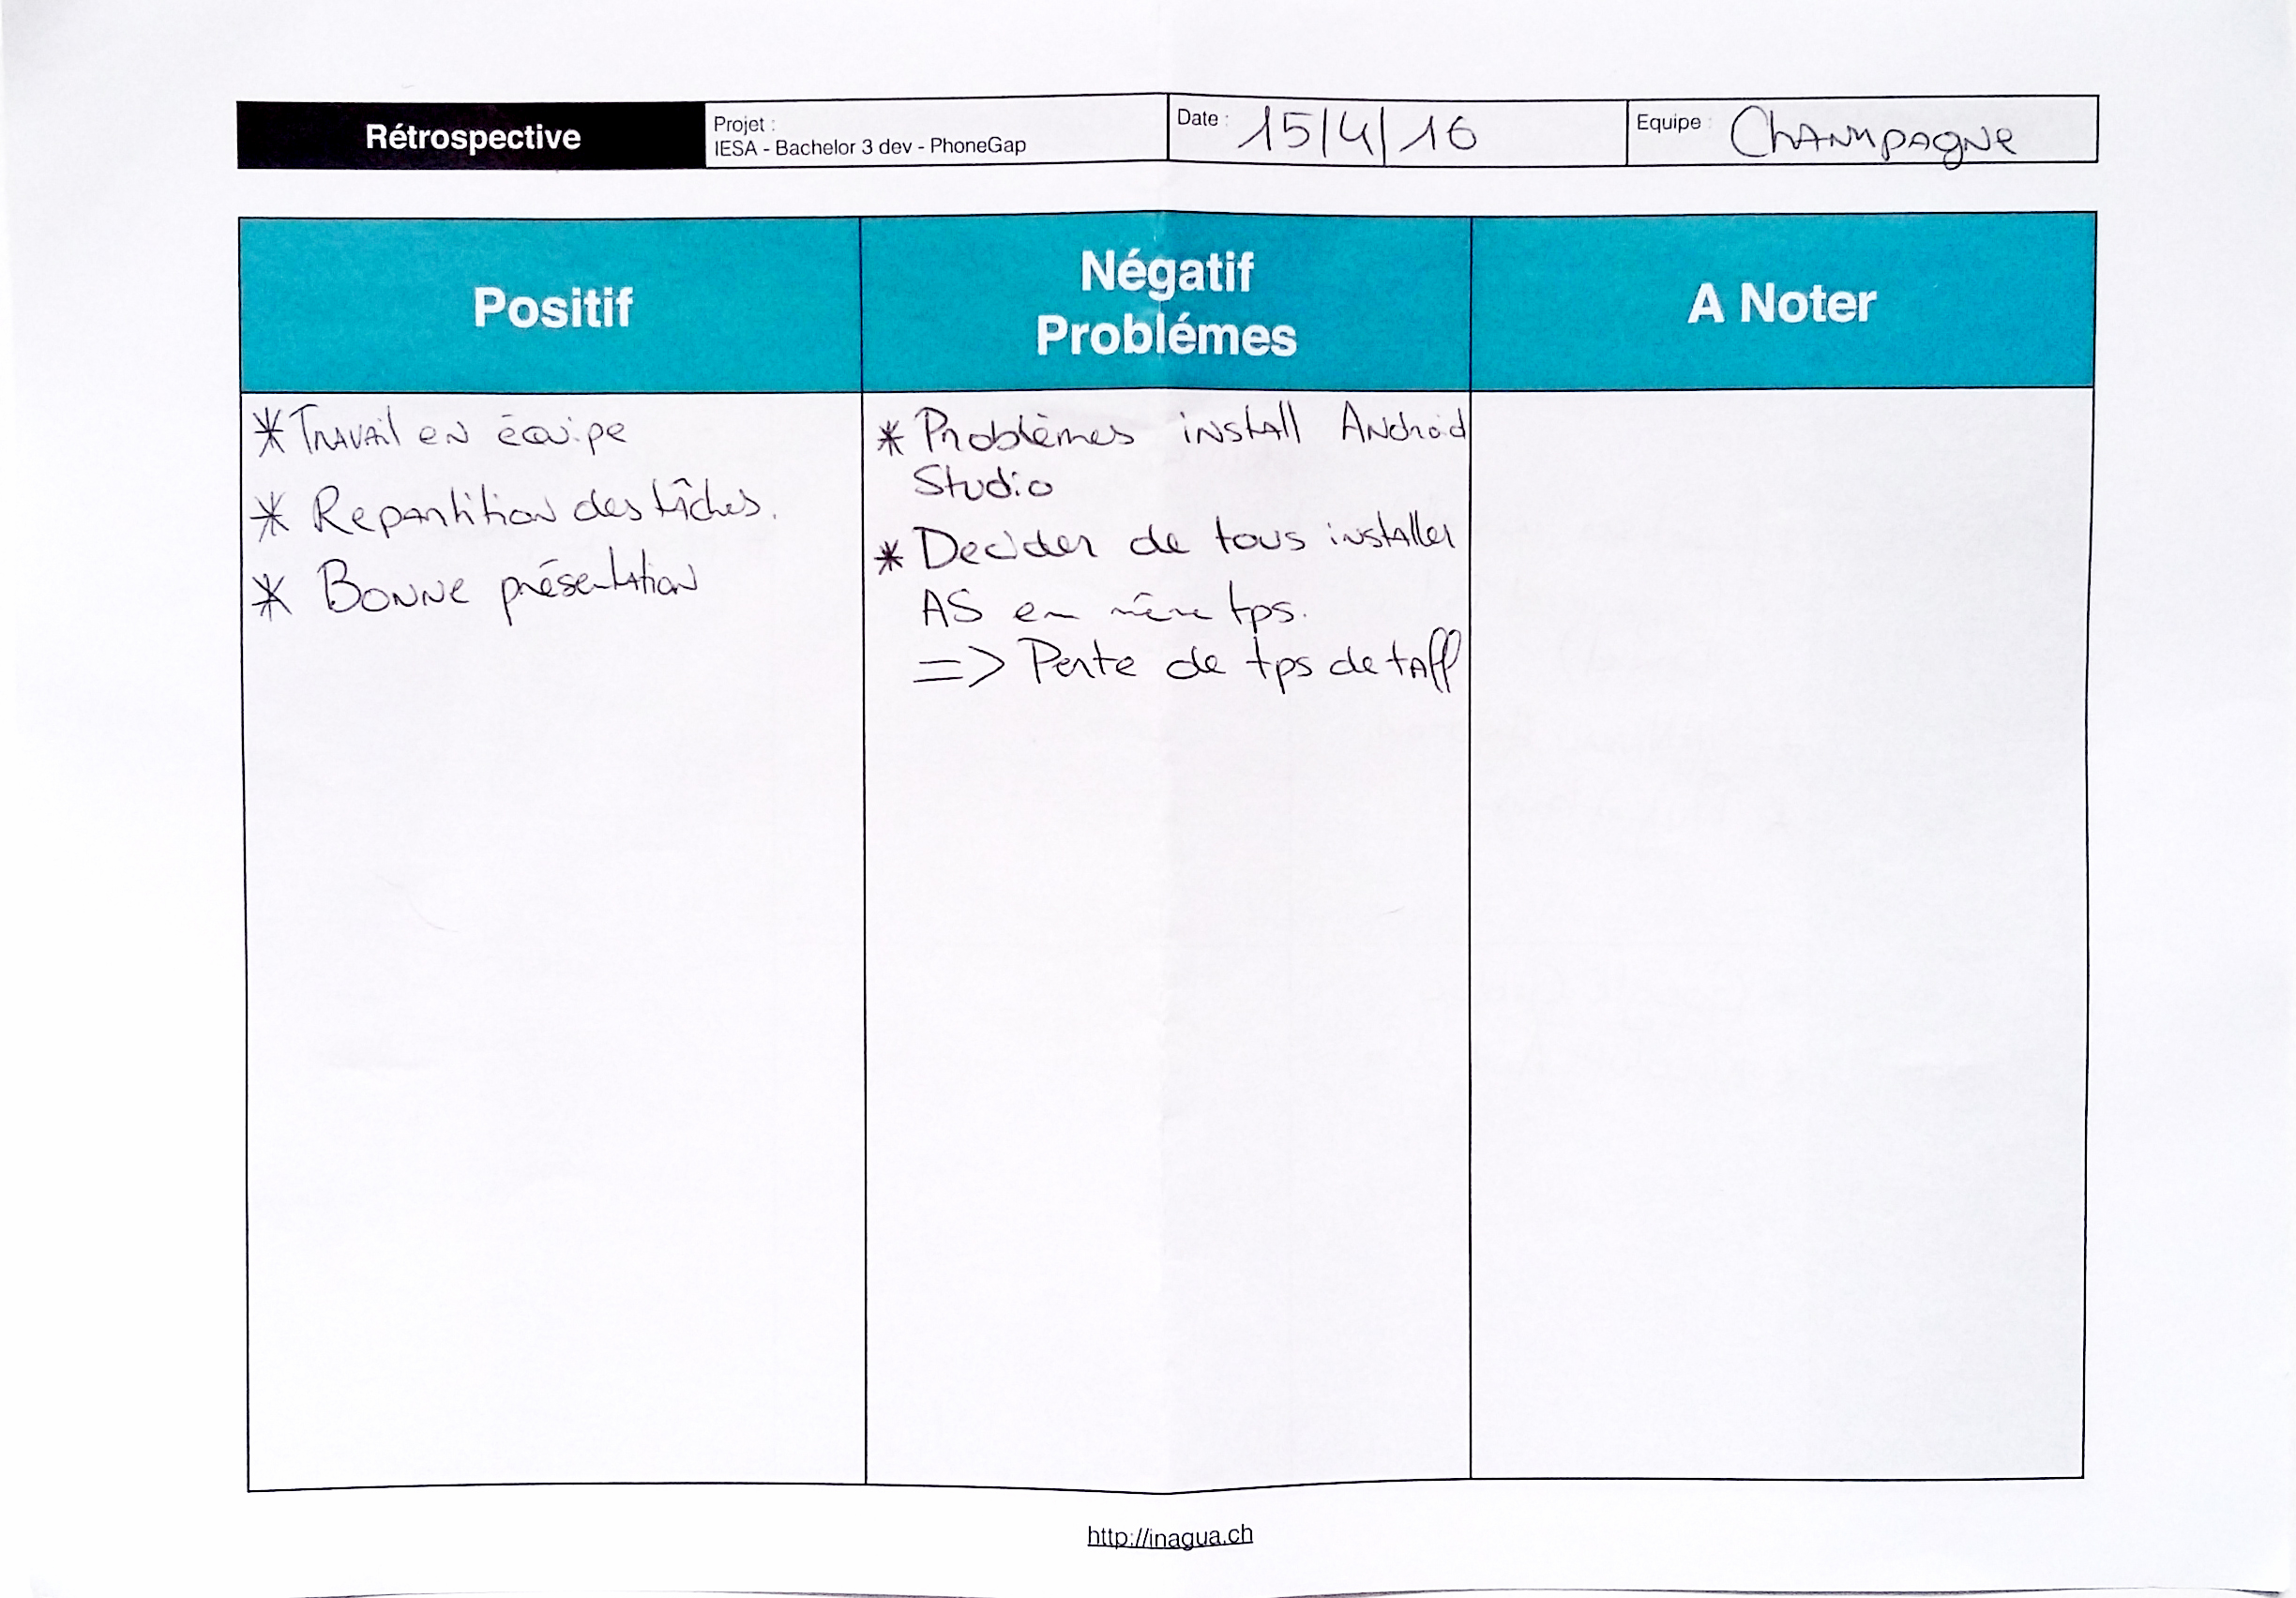 Rétrospective
Projet :
IESA - Bachelor 3 dev - PhoneGap
Date : 15/4/16
Equipe : Champagne
Positif
Négatif
Problémes
A Noter
* Travail en équipe
* Repartition des tâches.
* Bonne présentation
* Problèmes install Android
Studio
* Decider de tous installer
AS en même tps.
=> Perte de tps de taff
http://inagua.ch